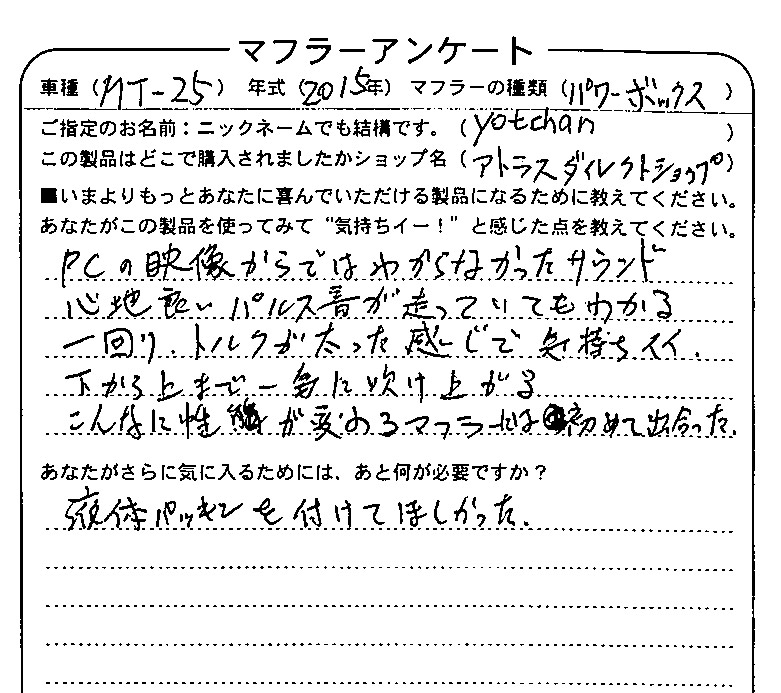 マフラーアンケート
車種（MT-25） 年式（2015年） マフラーの種類（パワーボックス）
ご指定のお名前：ニックネームでも結構です。（yotchan）
この製品はどこで購入されましたかショップ名（アトラスダイレクトショップ）
■いまよりもっとあなたに喜んでいただける製品になるために教えてください。
あなたがこの製品を使ってみて“気持ちイー！”と感じた点を教えてください。
PCの映像からではわからなかったサウンド
心地良いパルス音が走っていてもわかる
一回り、トルクが太った感じで気持ちイイ.
下から上まで一気に吹け上がる
こんなに性能が変わるマフラーには初めて出合った.
あなたがさらに気に入るためには、あと何が必要ですか？
液体パッキンを付けてほしかった.